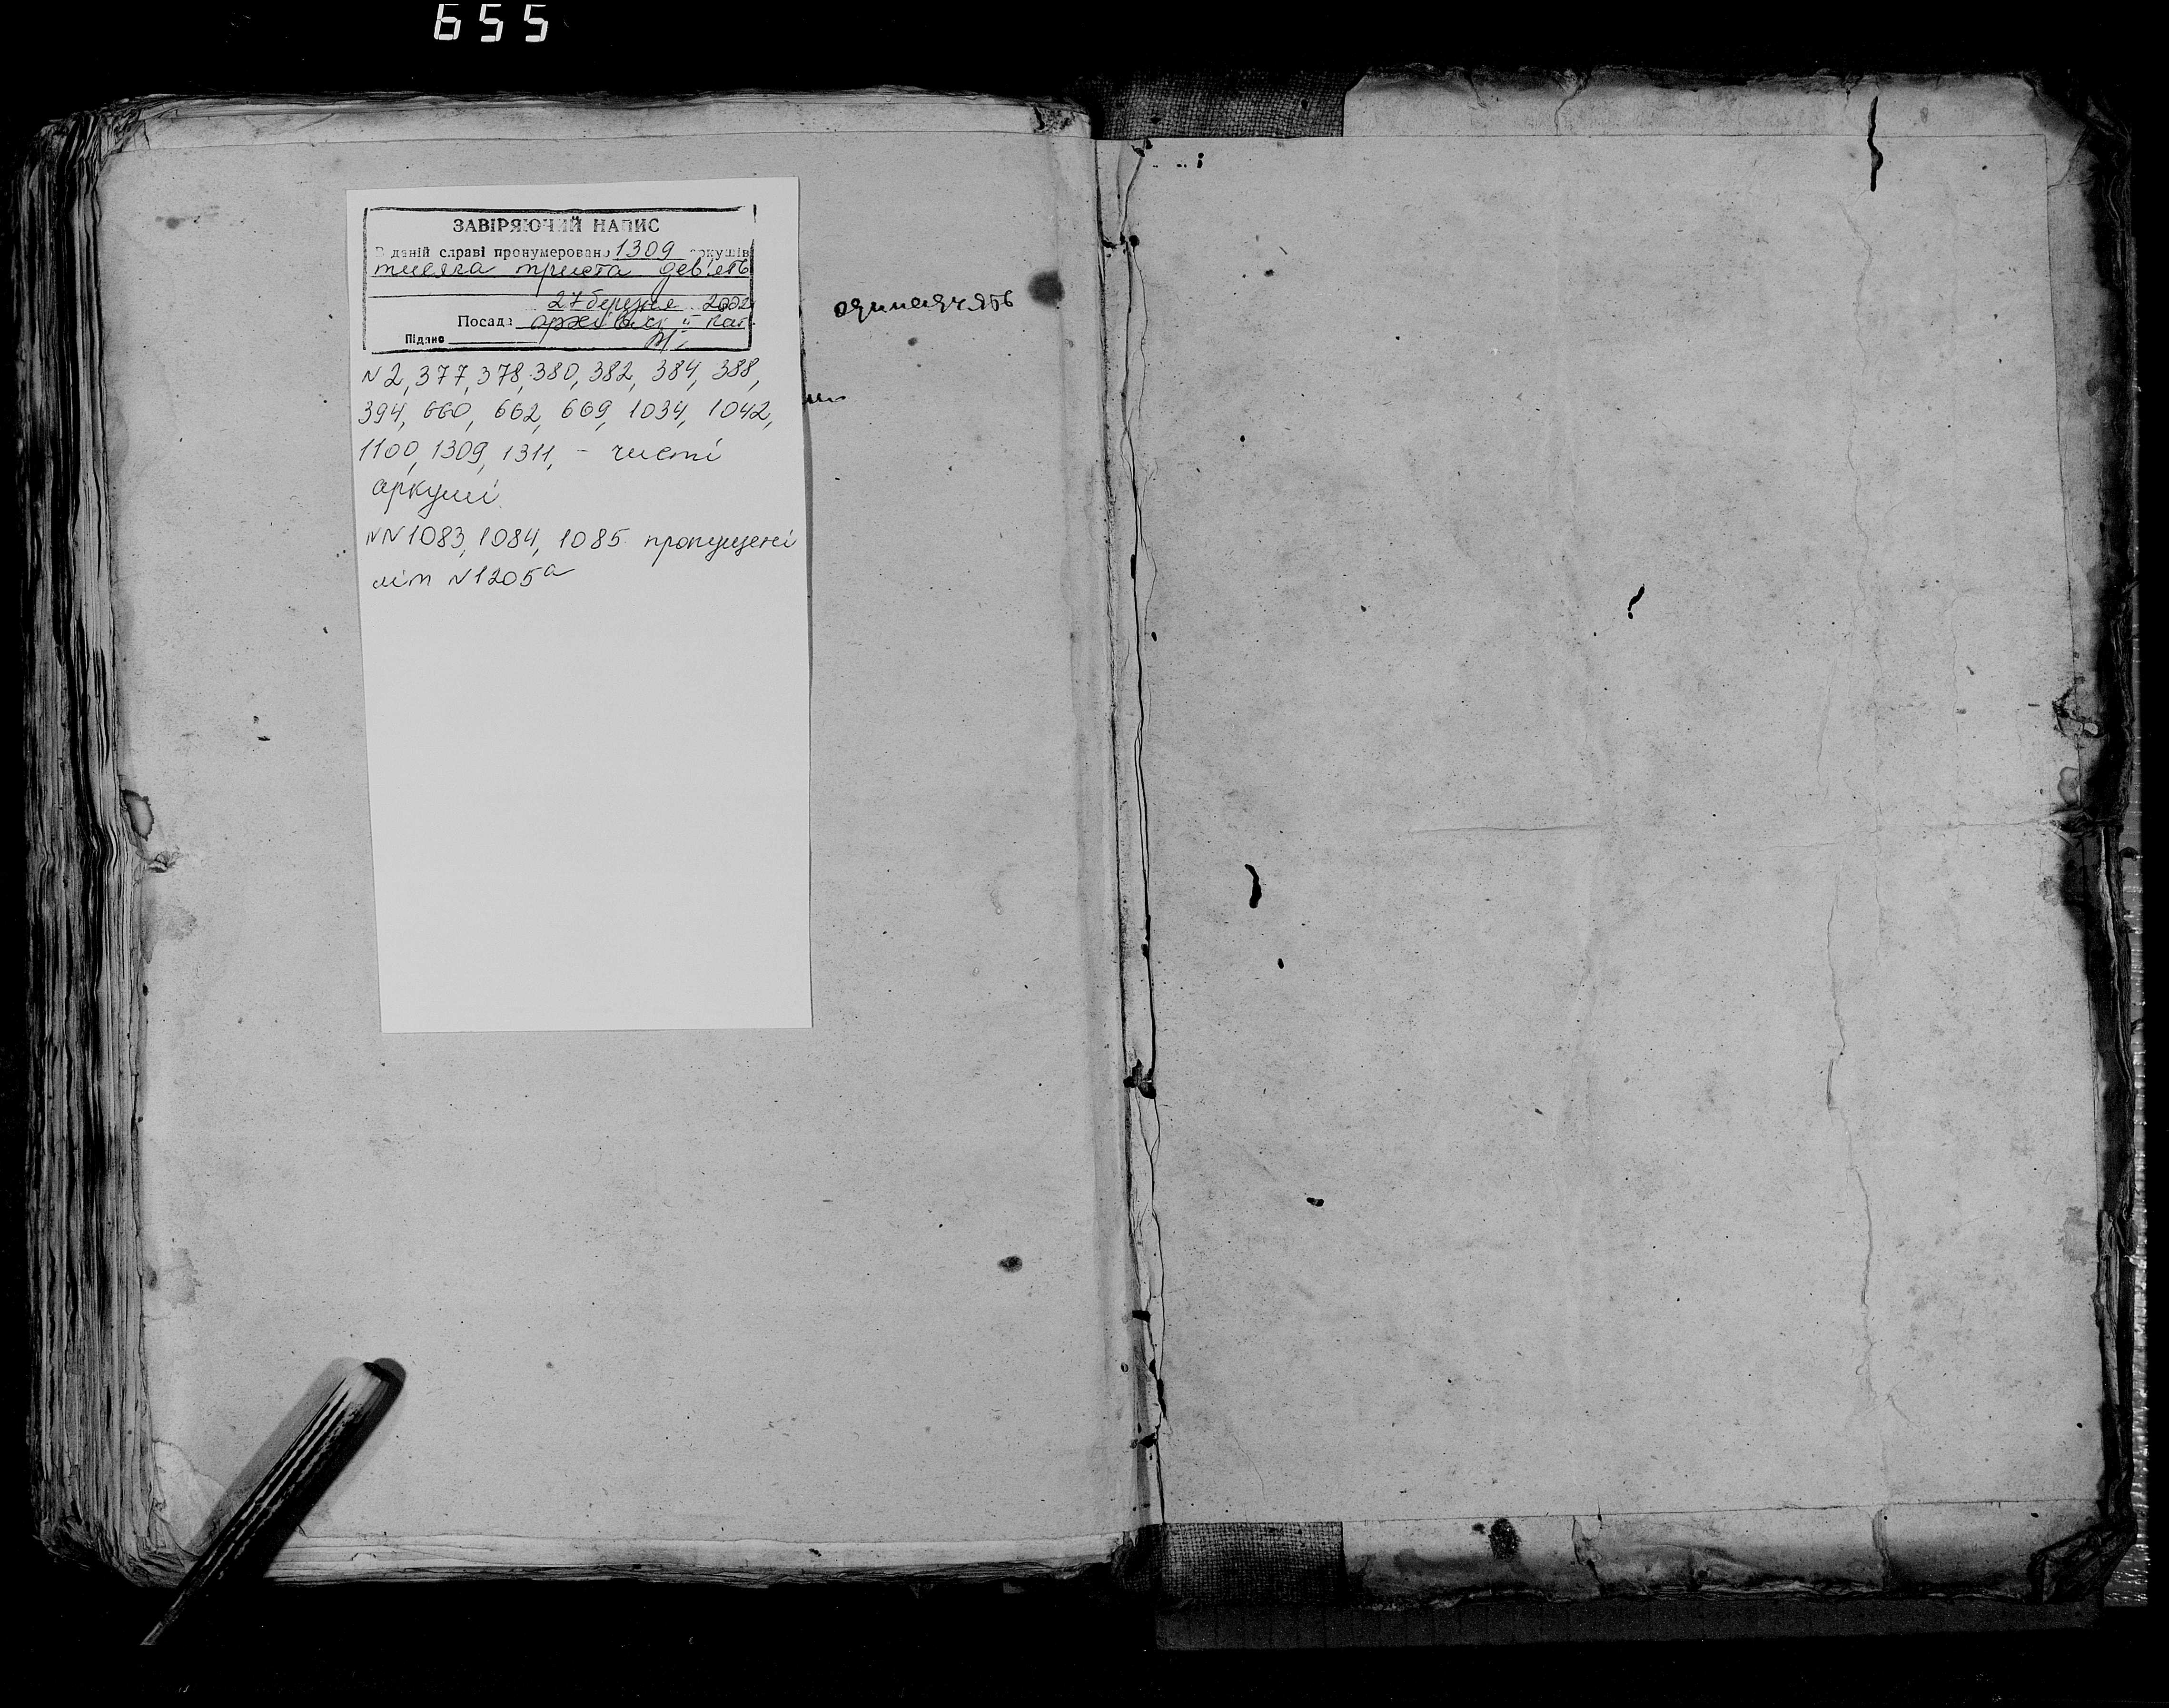 655
ЗАВІРЯЮЧИЙ НАПИС
В даній справі пронумеровано 1309 аркушів
тисяча триста дев'ять
27 березня 2002
Посада архівіст II кат.
Підпис
N 2, 377, 378, 380, 382, 384, 388,
394, 660, 662, 669, 1034, 1042,
1100, 1309, 1311, - чисті
аркуші
NN 1083, 1084, 1085 пропущені
літ N 1205а
одинадчять